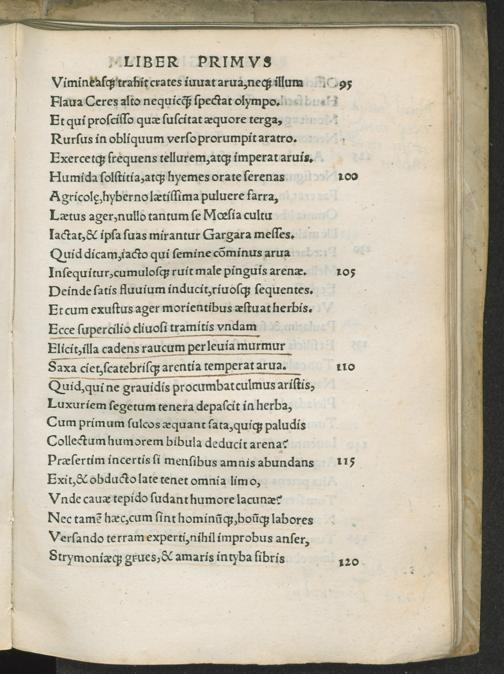 LIBER PRIMVS
Vimineasqꝫ trahit crates iuuat arua, neqꝫ illum 95
Flaua Ceres alto nequicqꝫ spectat olympo.
Et qui proscisso quæ suscitat æquore terga,
Rursus in obliquum verso prorumpit aratro.
Exercetqꝫ frequens tellurem, atqꝫ imperat aruis.
Humida solstitia, atqꝫ hyemes orate serenas 100
Agricolę, hyberno lætissima puluere farra,
Lætus ager, nullo tantum se Mœsia cultu
Iactat, & ipsa suas mirantur Gargara messes.
Quid dicam, iacto qui semine cōminus arua
Insequitur, cumulosqꝫ ruit male pinguis arenæ. 105
Deinde satis fluuium inducit, riuosqꝫ sequentes.
Et cum exustus ager morientibus æstuat herbis.
Ecce supercilio cliuosi tramitis vndam
Elicit, illa cadens raucum per leuia murmur
Saxa ciet, scatebrisqꝫ arentia temperat arua. 110
Quid, qui ne grauidis procumbat culmus aristis,
Luxuriem segetum tenera depascit in herba,
Cum primum sulcos æquant sata, quiqꝫ paludis
Collectum humorem bibula deducit arena?
Præsertim incertis si mensibus amnis abundans 115
Exit, & obducto late tenet omnia limo,
Vnde cauæ tepido sudant humore lacunæ?
Nec tamē hæc, cum sint hominūqꝫ, boūqꝫ labores
Versando terram experti, nihil improbus anser,
Strymoniæqꝫ grues, & amaris intyba fibris 120